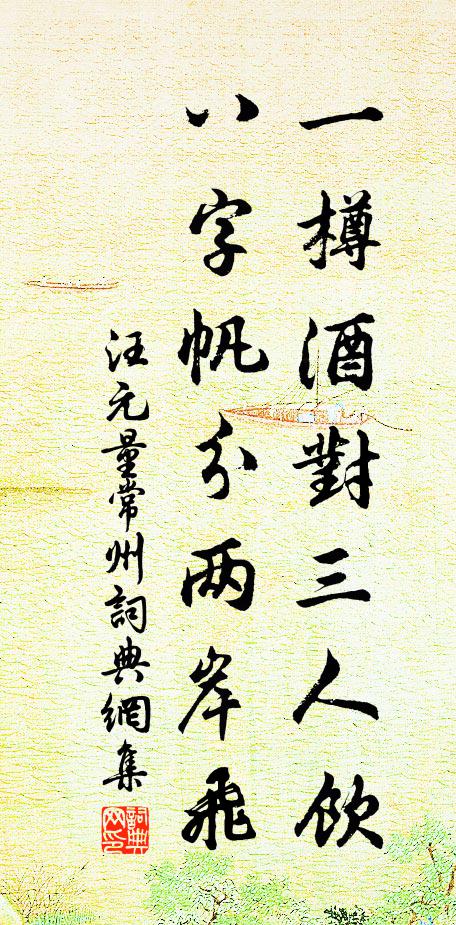 一樽酒對三人飲
八字帆分兩岸飛
汪元量常州詞典網集
詞典網印